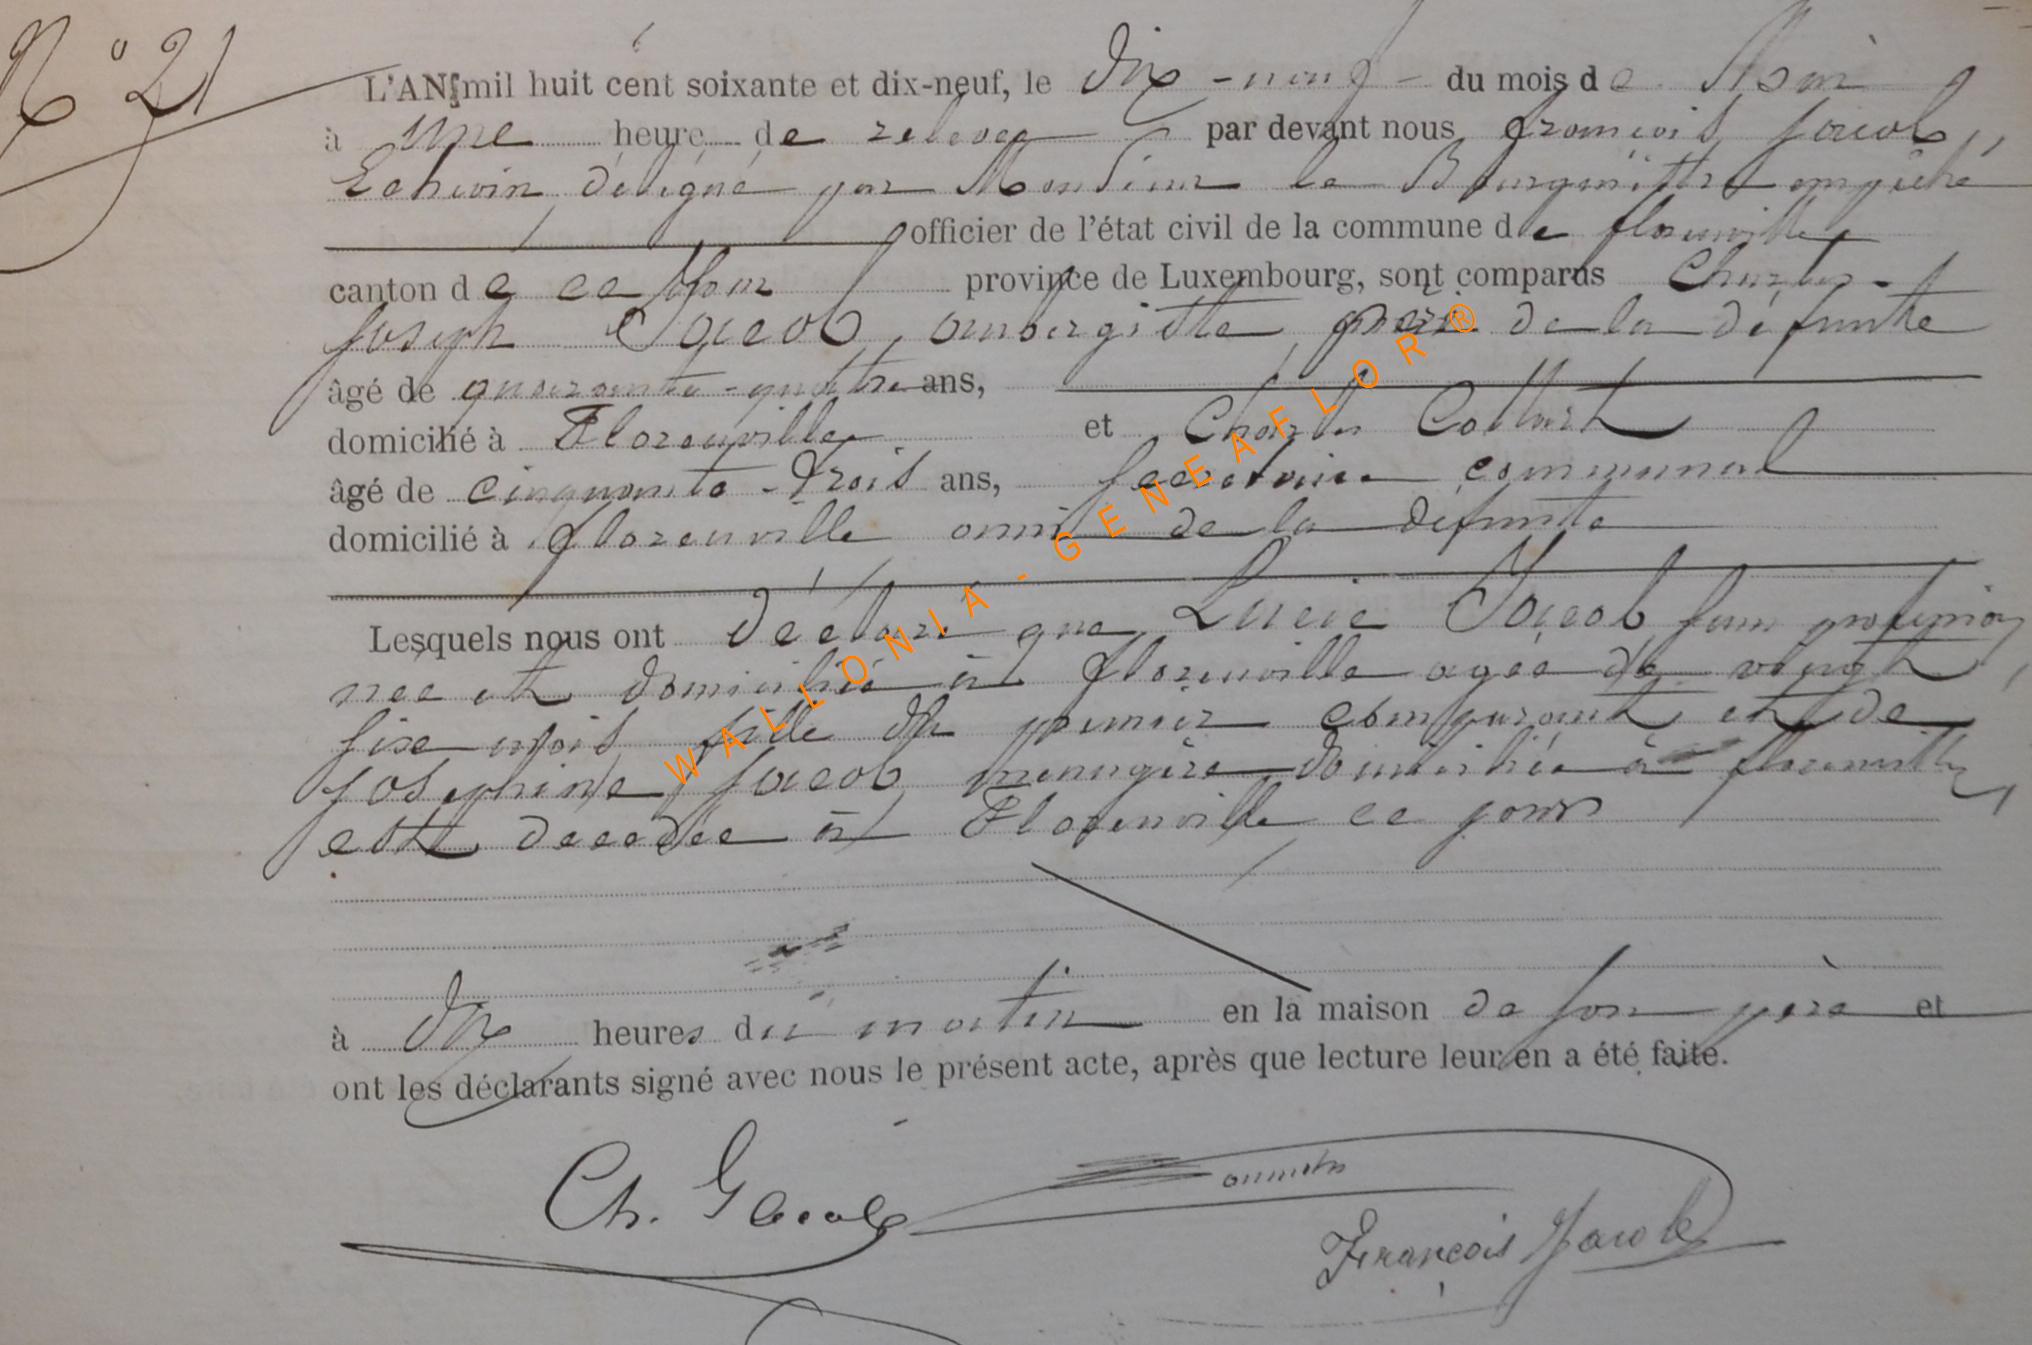 N° 21
L'AN mil huit cent soixante et dix-neuf, le dix-neuf du mois de Mai
à une heure de relevée par devant nous François Jacob,
Echevin délégué par Monsieur le Bourgmestre empêché
officier de l'état civil de la commune de florenville
canton de ce Nom province de Luxembourg, sont comparus Charles-
Joseph Jacob, aubergiste, père de la défunte
âgé de quarante-quatre ans,
domicilié à Florenville et Charles Collart
âgé de cinquante-trois ans, secretaire communal
domicilié à florenville ami de la défunte
Lesquels nous ont déclaré que Lucie Jacob sans profession
née et domiciliée à florenville agée de vingt
sixe mois fille du premier comparant et de
Joséphine Jacob menagère domiciliée à florenville,
est décédée à Florenville ce jour
à dix heures du matin en la maison de son père et
ont les déclarants signé avec nous le présent acte, après que lecture leur en a été faite.
Ch. Jacob
François Jacob
WALLONIA - GENEAFLOR ®